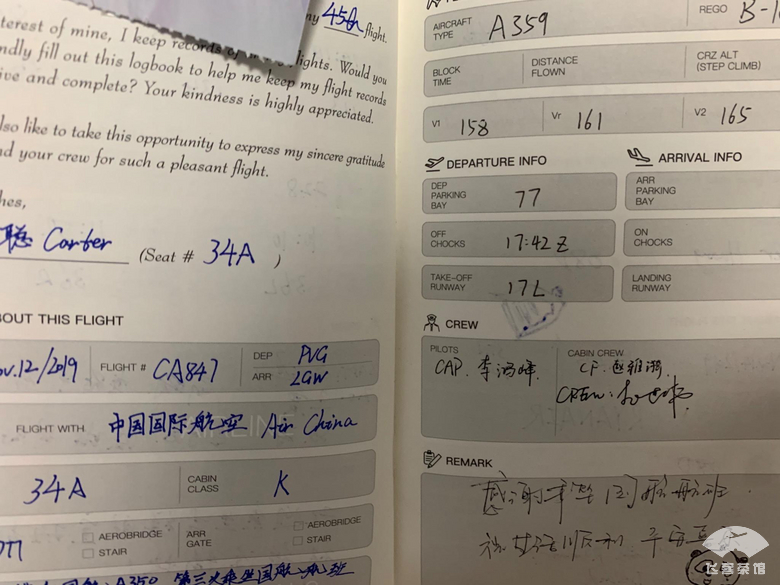 my 45th flight.
terest of mine, I keep records of flights. Would you
ndly fill out this logbook to help me keep my flight records
ive and complete? Your kindness is highly appreciated.
lso like to take this opportunity to express my sincere gratitude
nd your crew for such a pleasant flight.
hes,
聪 Carter (Seat # 34A )
BOUT THIS FLIGHT
ov.12/2019 FLIGHT # CA847 DEP PVG
ARR LGW
FLIGHT WITH 中国国际航空 Air China
34A CABIN CLASS K
AEROBRIDGE
STAIR
ARR GATE
AEROBRIDGE
STAIR
A350 第三次乘坐国航 航班
AIRCRAFT TYPE A359 REGO B-1
BLOCK TIME DISTANCE FLOWN CRZ ALT (STEP CLIMB)
V1 158 Vr 161 V2 165
DEPARTURE INFO
DEP PARKING BAY 77
OFF CHOCKS 17:42 Z
TAKE-OFF RUNWAY 17L
ARRIVAL INFO
ARR PARKING BAY
ON CHOCKS
LANDING RUNWAY
CREW
PILOTS
CAP. 李鸿峰.
CABIN CREW
CF. 赵雅
CREW:
REMARK
感谢乘坐国航航班
祝 顺利 平安
飞客茶馆